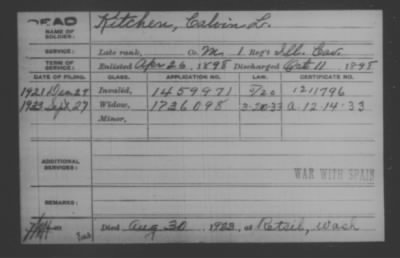 DEAD
NAME OF SOLDIER: Kitchen, Calvin L.
SERVICE: Late rank, Co. M. 1. Reg't Ill. Cav.
TERM OF SERVICE: Enlisted Apr 26, 1898 Discharged Oct 11 1898
DATE OF FILING. CLASS. APPLICATION NO. LAW. CERTIFICATE NO.
1921 Dec 27 Invalid, 1459971 5/20 1211796
1923 Sept 27 Widow, 1736098 a. 12-14-33
Minor,
ADDITIONAL SERVICES:
WAR WITH SPAIN
REMARKS:
Died Aug 30 1923, at Retsil, Wash